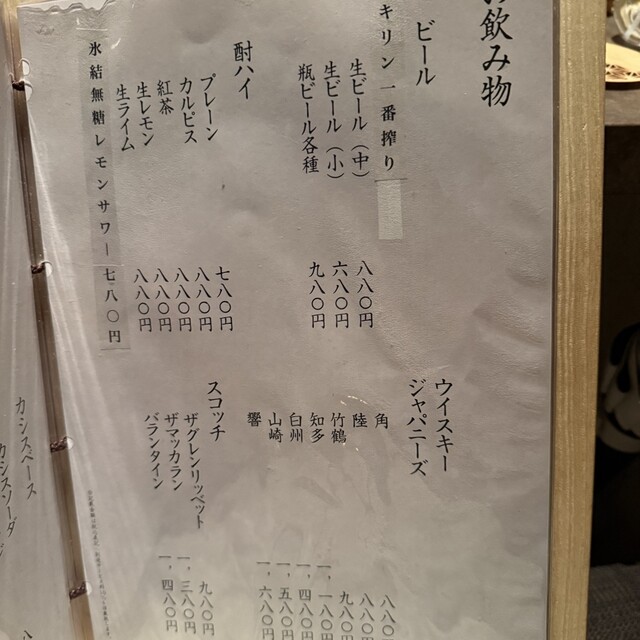 お飲み物
ビール
キリン一番搾り
生ビール（中）　八八〇円
生ビール（小）　六八〇円
瓶ビール各種　九八〇円
酎ハイ
プレーン　七八〇円
カルピス　八八〇円
紅茶　八八〇円
生レモン　八八〇円
生ライム　八八〇円
氷結無糖レモンサワー七八〇円
ウイスキー
ジャパニーズ
角　八八〇
陸　八八〇円
竹鶴　九八〇円
知多　一、一八〇円
白州　一、四八〇円
山崎　一、五八〇円
響　一、六八〇円
スコッチ
ザグレンリベット　九八〇円
ザマッカラン　一、三八〇円
バランタイン　一、四八〇円
カシスベース
カシスソーダ